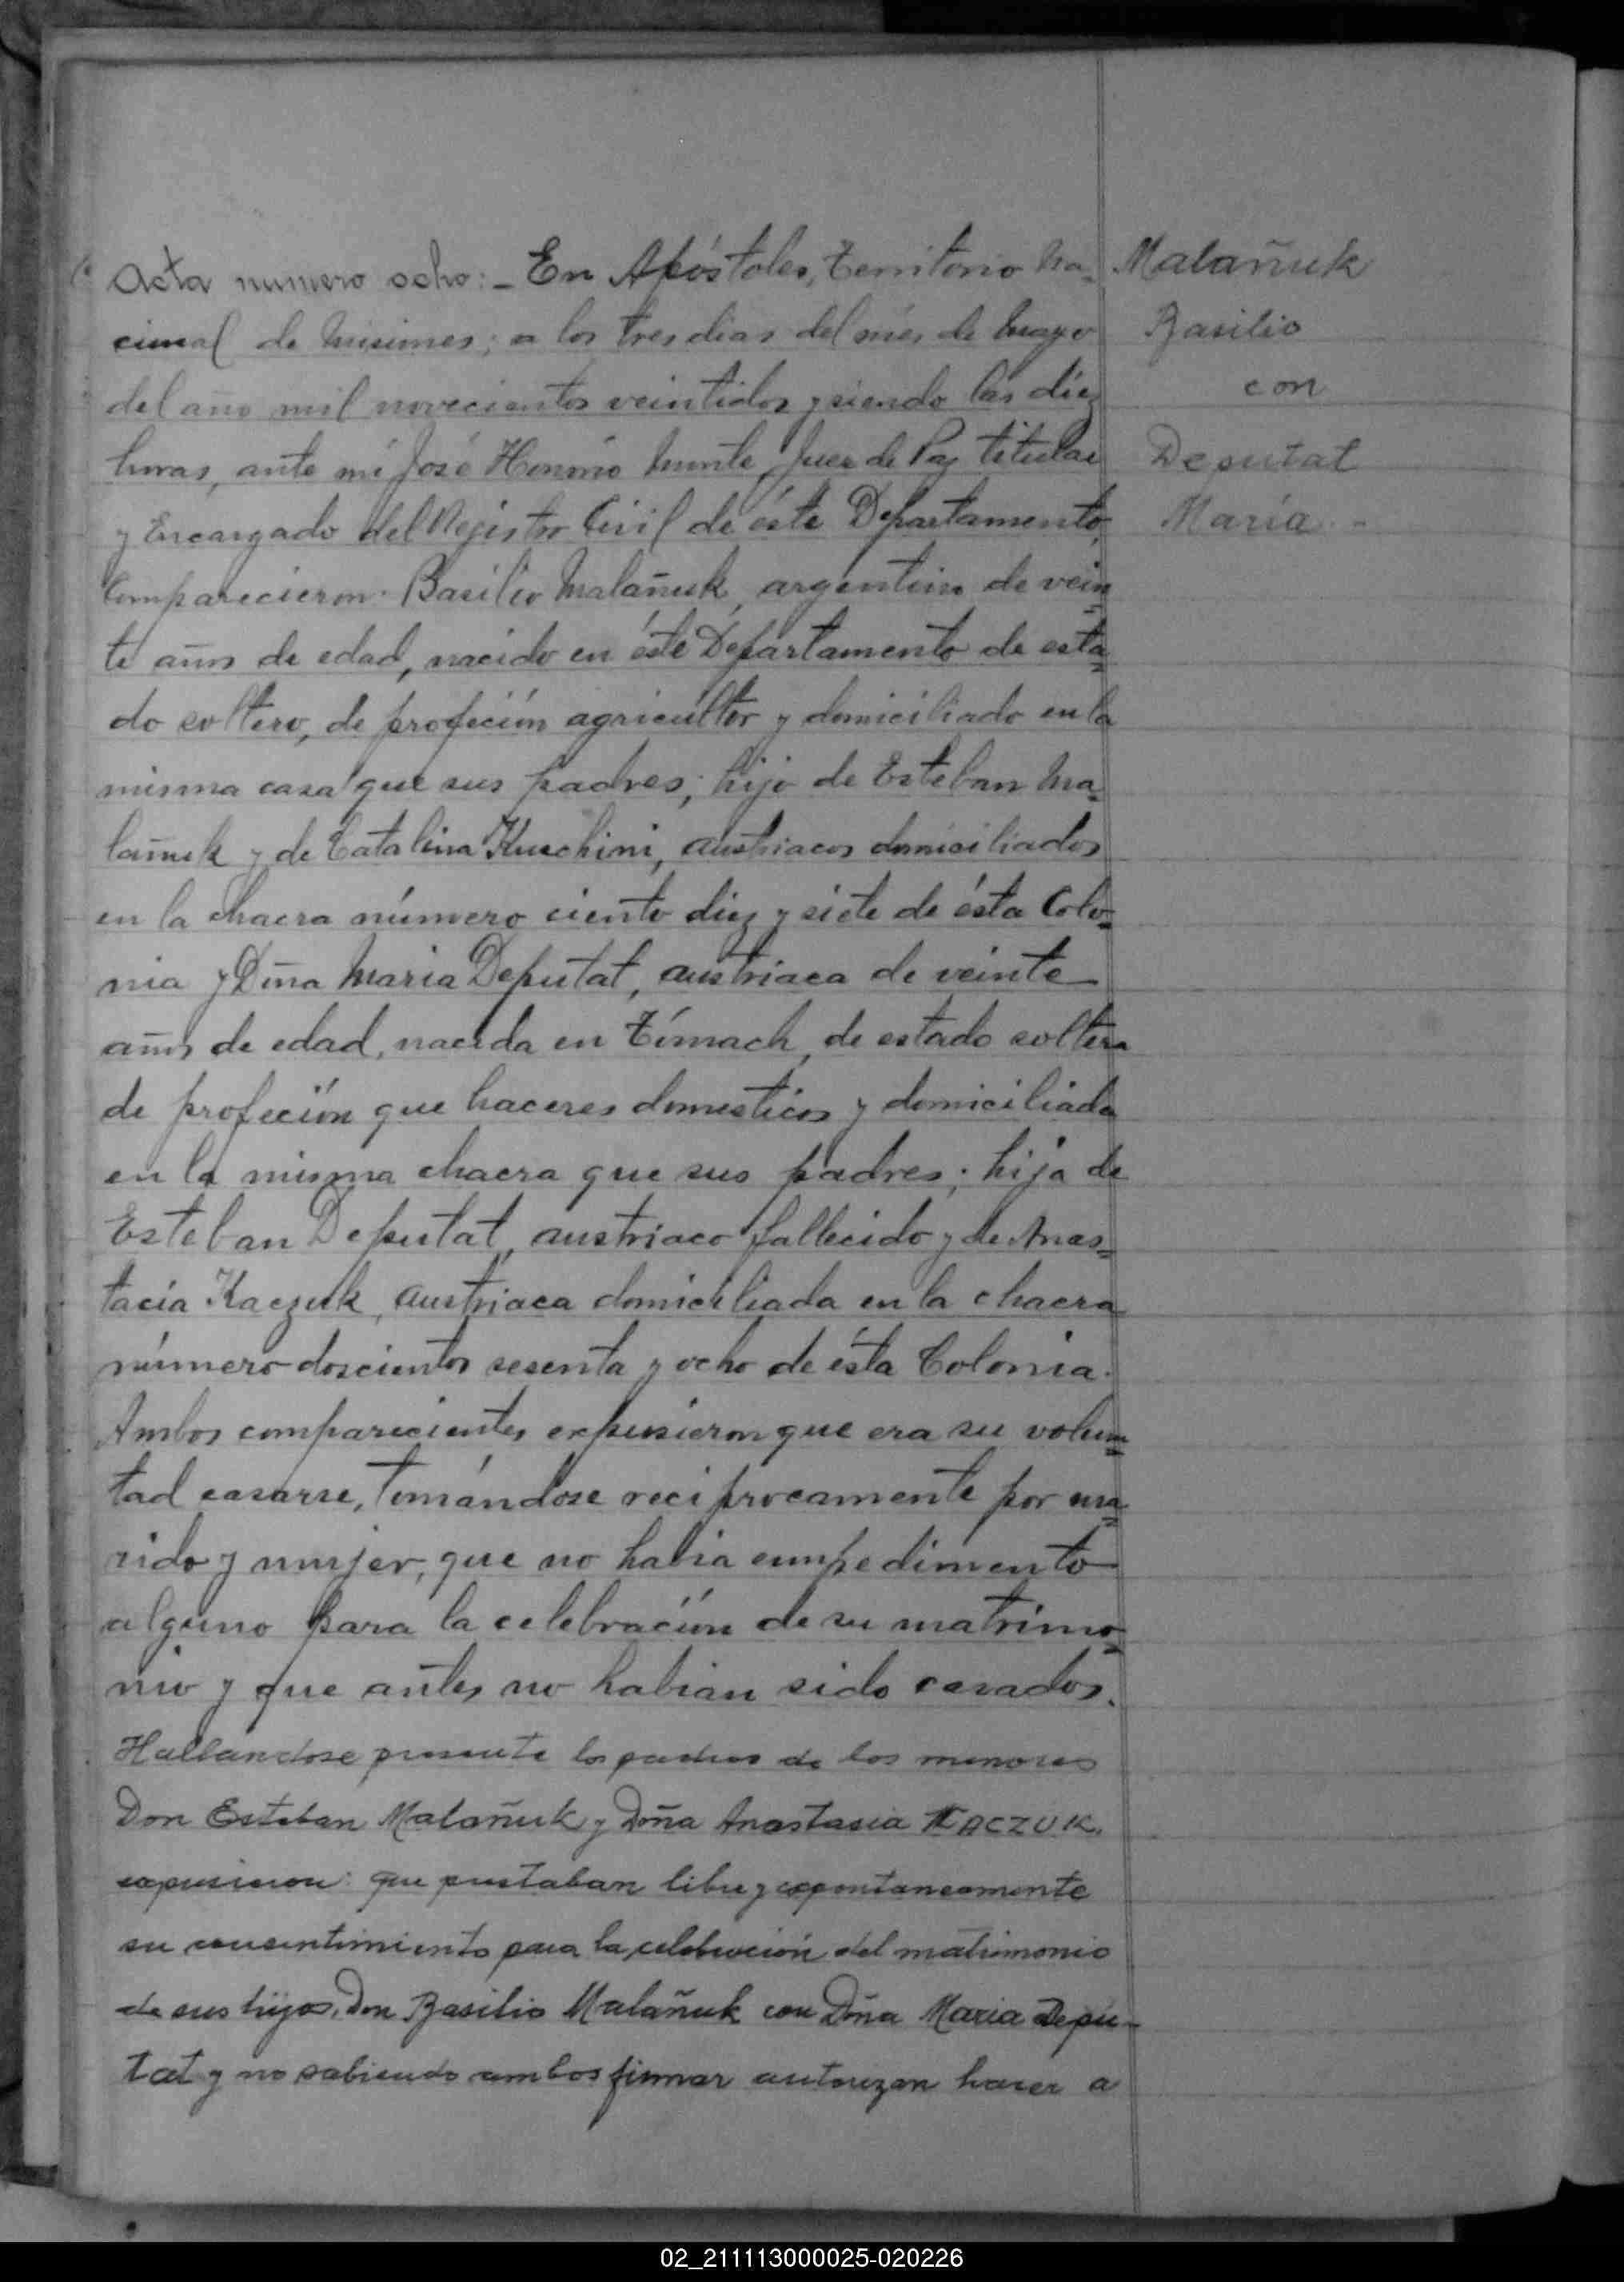 Acta numero ocho:- En Apóstoles, Territorio Na-
cional de Misiones; a los tres dias del més de Mayo
del año mil novecientos veintidos y siendo las diez
horas, ante mí José Honorio Monte Juez de Paz titular
y Encargado del Registro Civil de éste Departamento,
Comparecieron: Basilio Malañuk, argentino de vein=
te años de edad, nacido en éste Departamento de esta=
do soltero, de profeción agricultor y domiciliado en la
misma casa que sus padres; hijo de Esteban Ma=
lañuk y de Catalina Kuschimi, austriacos domiciliados
en la chacra número ciento diez y siete de ésta Colo=
nia y Dña Maria Deputat, austriaca de veinte
años de edad, nacida en Tómach, de estado soltera
de profeción que haceres domesticos y domiciliada
en la misma chacra que sus padres; hija de
Esteban Deputat, austriaco fallecido y de Anas=
tacia Kaczuk, austriaca domiciliada en la chacra
número doscientos sesenta y ocho de ésta Colonia.
Ambos comparecientes expusieron que era su volun=
tad casarse, tomándose reciprocamente por ma=
rido y mujer, que no habia eimpedimento
alguno para la celebración de su matrimo=
nio y que antes no habian sido casados.
Hallandose presente los padres de los menores
Don Esteban Malañuk y Doña Anastasia KACZUK.
expusieron: que prestaban libre y espontaneamente
su consentimiento para la celebración del matrimonio
de sus hijos, Don Basilio Malañuk con Doña Maria Depu-
tat y no sabiendo ambos firmar autorizan hacer a
Malañuk
Basilio
con
Deputat
María.-
02_211113000025-020226